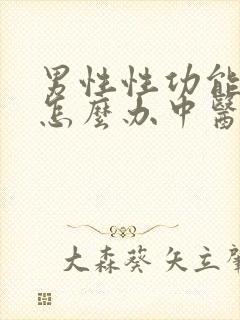 男性性功能
怎麼办中醫
大森葵 矢立肇